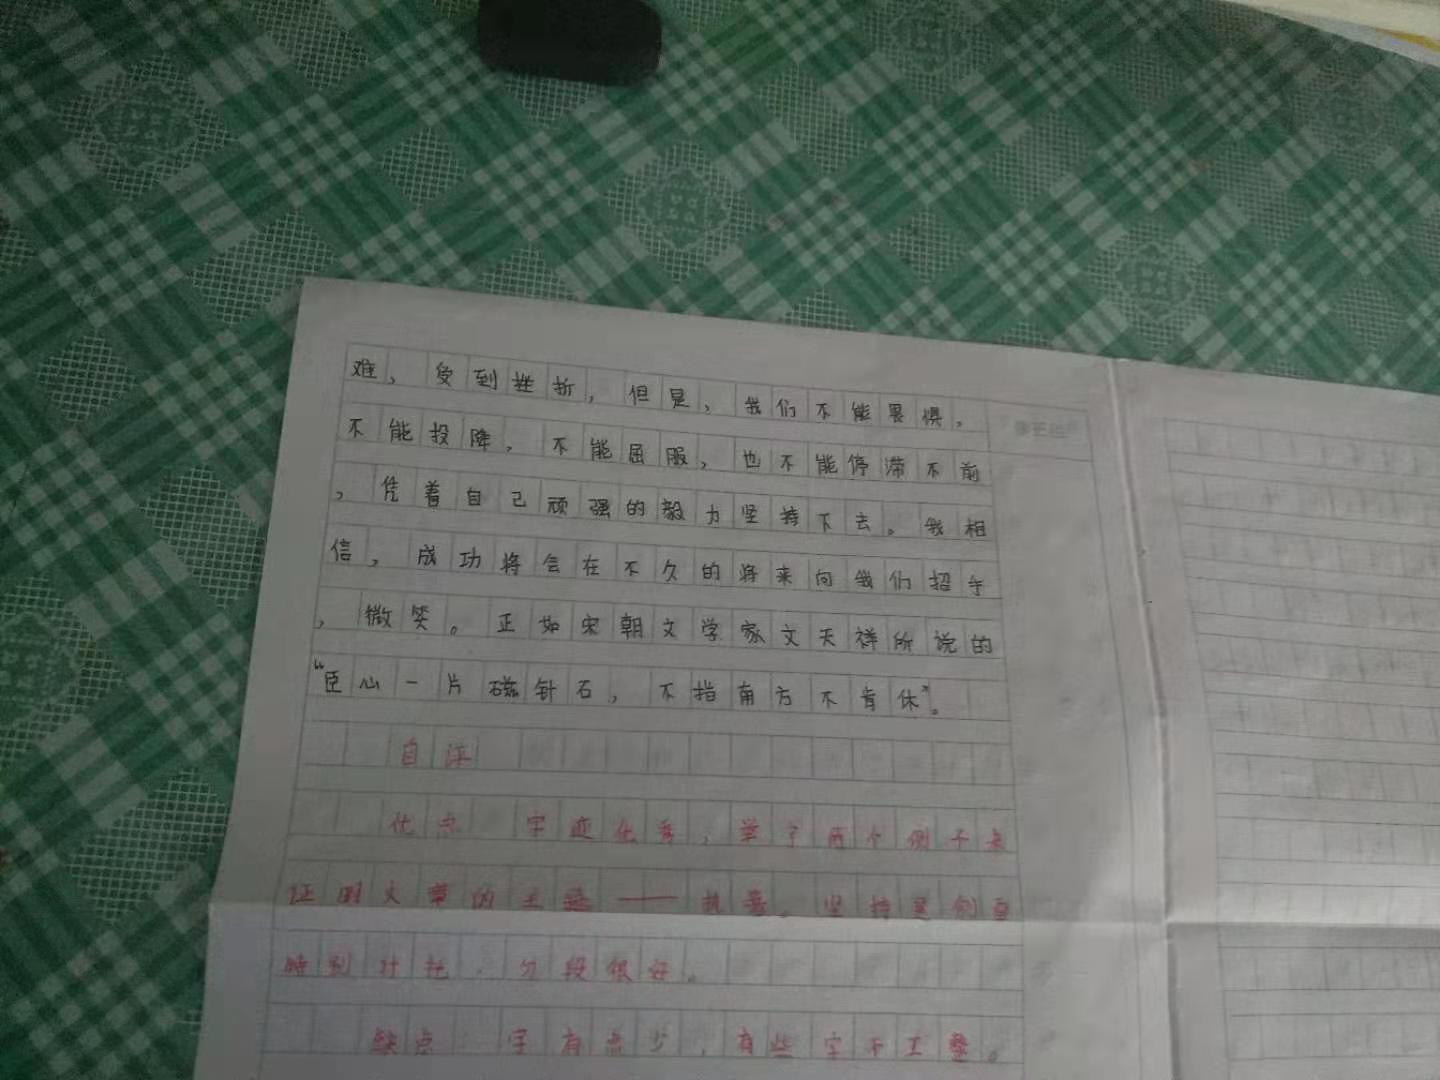 难，受到挫折，但是，我们不能畏惧，
不能投降，不能屈服，也不能停滞不前
，凭着自己顽强的毅力坚持下去。我相
信，成功将会在不久的将来向我们招手
，微笑。正如宋朝文学家文天祥所说的
“臣心一片磁针石，不指南方不肯休”。
自评
优点 字迹优秀，举了两个例子来
证明文章的主题——执着。坚持是
特别 ，分段很好。
缺点 字有点少，有些字不工整。